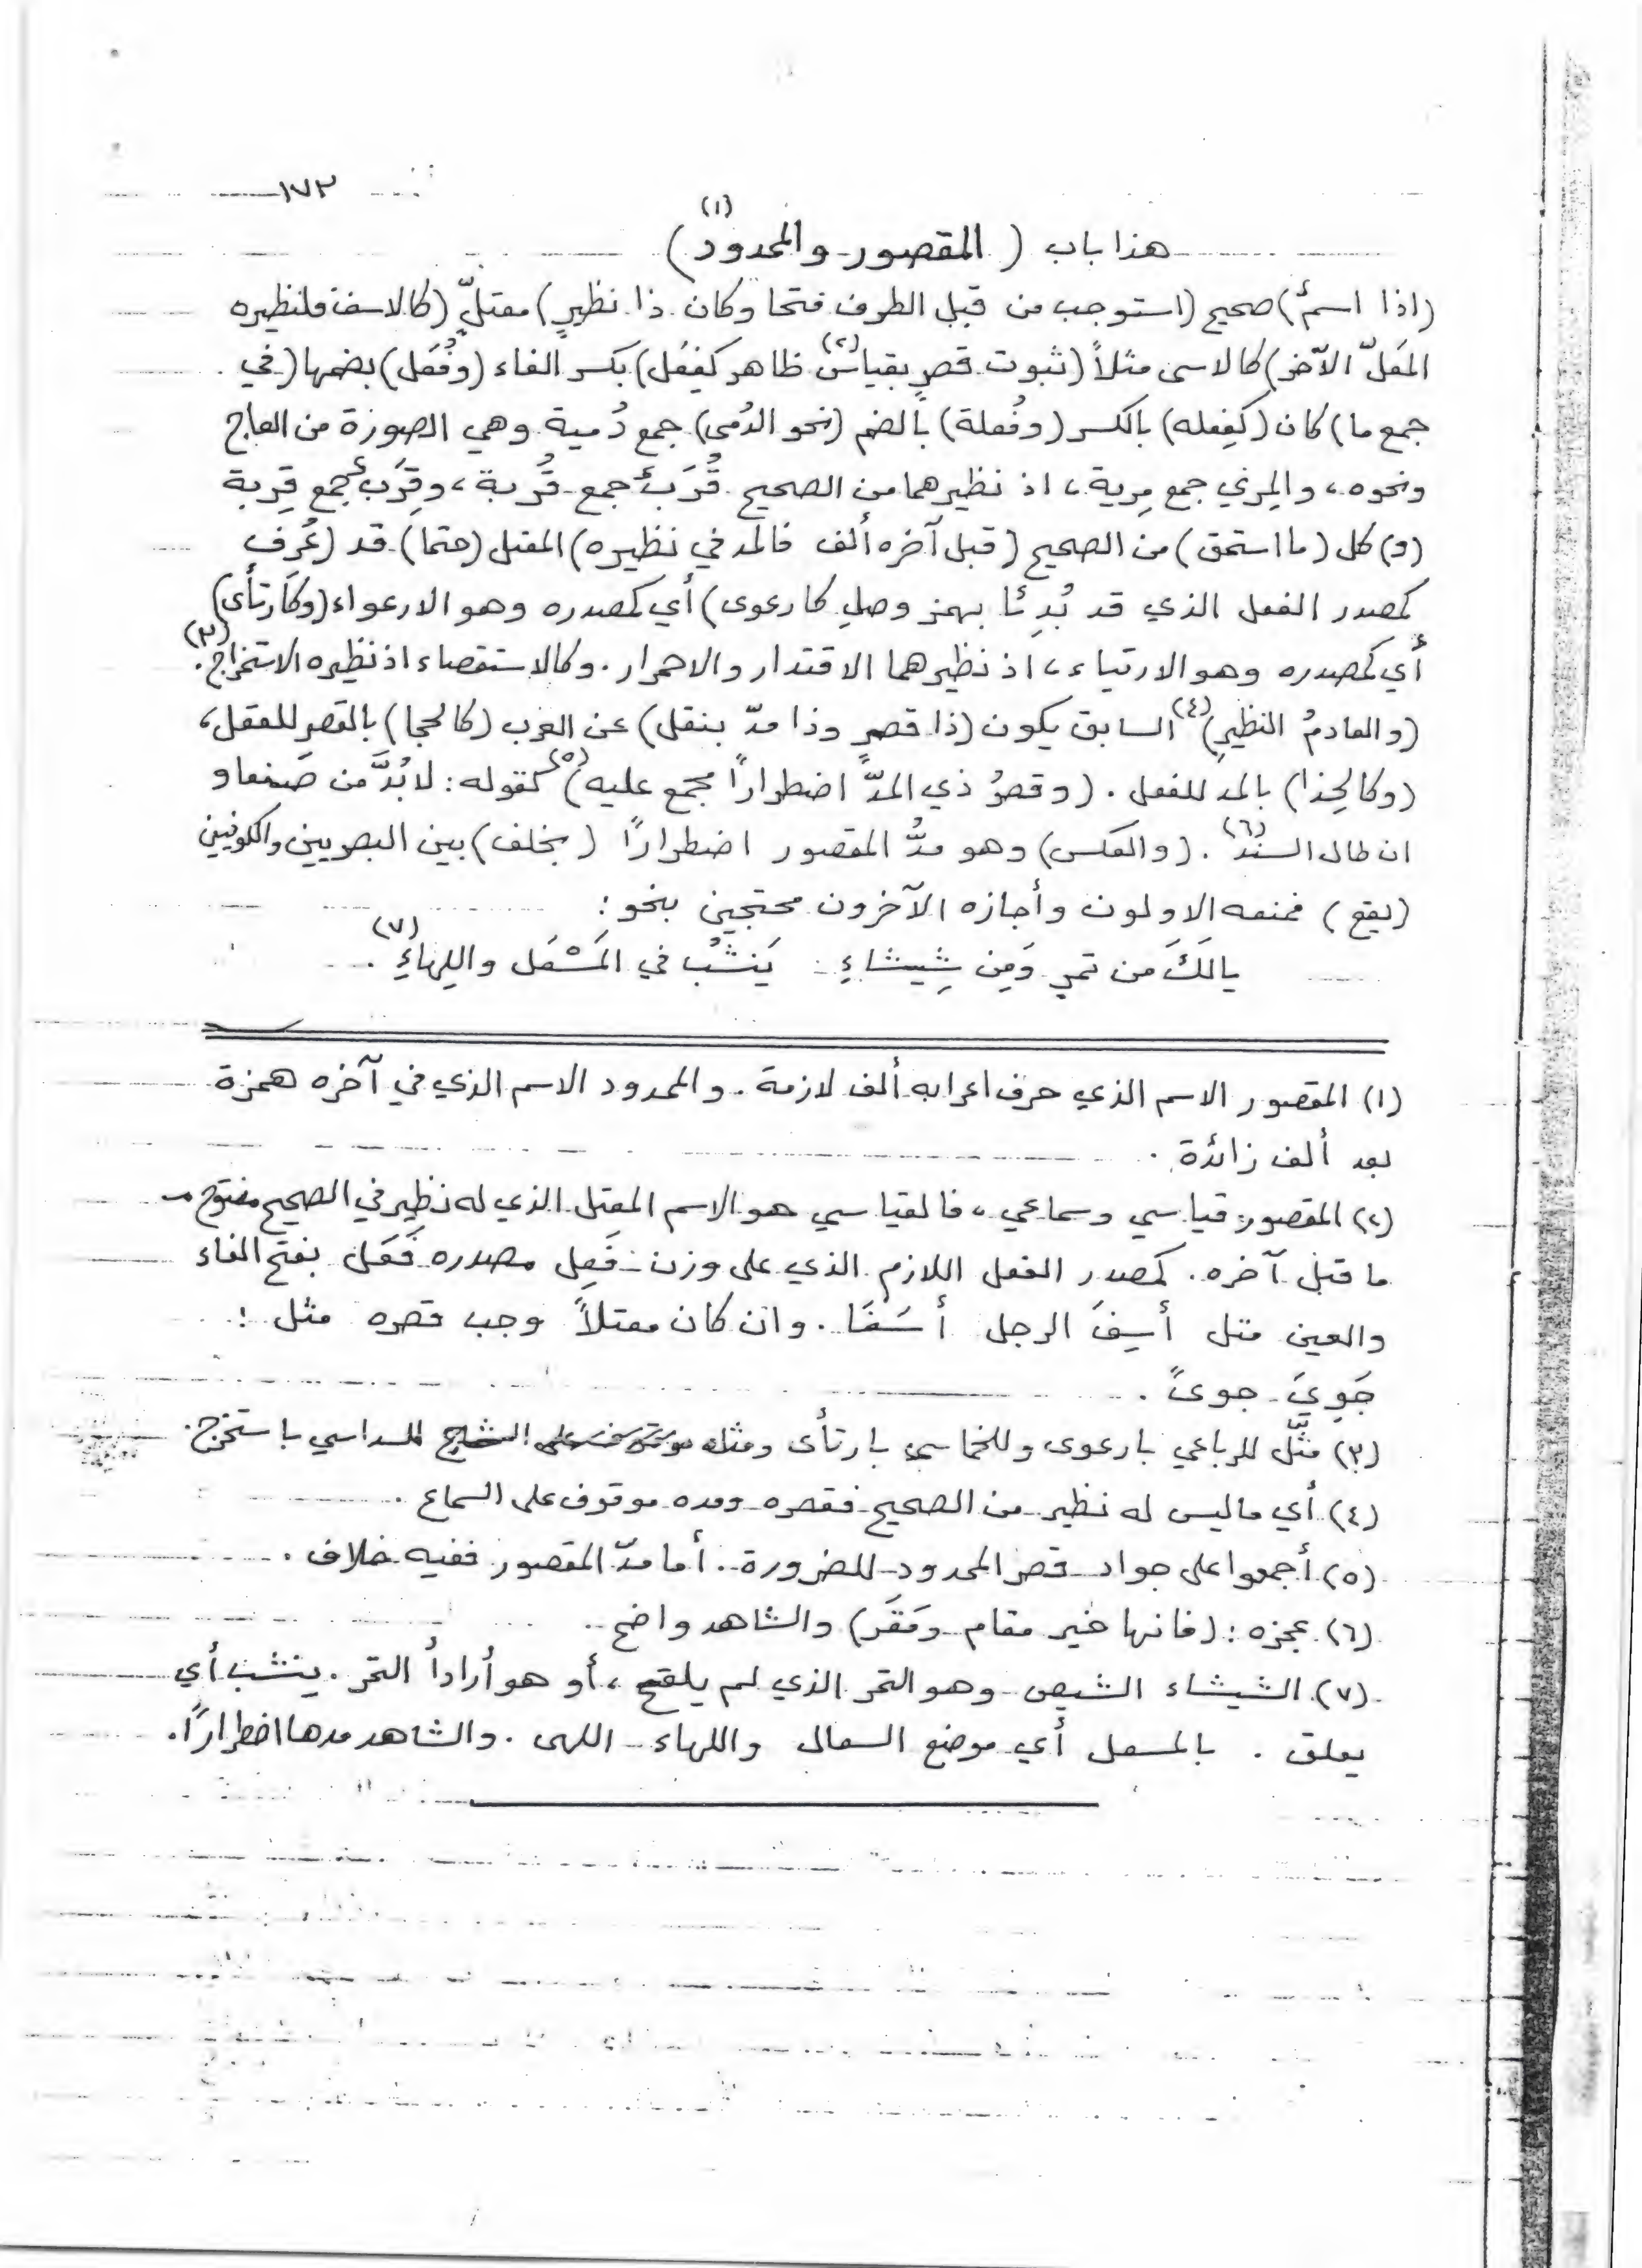 ١٧٣
هذا باب ( المقصور والممدود )(١)
(اذا اسمٌ) صحيح (استوجب من قبل الطرف فتحا وكان ذا نظيرٍ) معتلٍّ (كالاسف فلنظيره
المُعَلّ الآخر) كالاسى مثلاً (ثبوت قصرٍ بقياس(٢) ظاهر كفِعَل) بكسر الفاء (وفُعَل) بضمها (في
جمع ما) كان (كفِعله) بالكسر (وفُعلة) بالضم (نحو الدُمى) جمع دُمية وهي الصورة من العاج
ونحوه ، والمِرى جمع مِرية ، اذ نظيرهما من الصحيح قُرَبٌ جمع قُربة ، وقِرَبٌ جمع قِربة
(و) كل (ما استحق) من الصحيح (قبل آخره ألف فالمد في نظيره) المعتل (حتما) قد (عُرف
كمصدر الفعل الذي قد بُدِئا بهمز وصلٍ كارعوى) أي كمصدره وهو الارعواء (وكارتأى)
أي كمصدره وهو الارتياء ، اذ نظيرهما الاقتدار والاحمرار . وكالاستقصاء اذ نظيره الاستخراج(٣).
(والعادمُ النظيرِ)(٤) السابق يكون (ذا قصرٍ وذا مدّ بنقل) عن العرب (كالحجا) بالقصر للعقل ،
(وكالحِذا) بالمد للفعل . (وقصرُ ذي المدّ اضطراراً مجمع عليه)(٥) كقوله : لا بُدَّ من صَنعا و
ان طال السفر(٦) . (والعكس) وهو مدُّ المقصور اضطراراً (بخلف) بين البصريين والكوفيين
(يقع) فمنعه الاولون وأجازه الآخرون محتجين بنحو :
يالَكَ من تمرٍ وَمِن شِيشاءِ يَنشَبُ في المَسْعَل واللِهاءِ(٧) .
(١) المقصور الاسم الذي حرف اعرابه ألف لازمة . والممدود الاسم الذي في آخره همزة
بعد ألف زائدة .
(٢) المقصور قياسي وسماعي ، فالقياسي هو الاسم المعتل الذي له نظير في الصحيح مفتوح
ما قبل آخره . كمصدر الفعل اللازم الذي على وزن فَعِل مصدره فَعَل بفتح الفاء
والعين مثل أسِفَ الرجل أسَفَا . وان كان معتلاً وجب قصره مثل :
جَوِيَ جوىً .
(٣) مثّل للرباعي بارعوى وللخماسي بارتأى ومثله للسداسي باستخرج .
(٤) أي ما ليس له نظير من الصحيح فقصره ومده موقوف على السماع .
(٥) أجمعوا على جواد قصر الممدود للضرورة . أما مدّ المقصور ففيه خلاف .
(٦) عجزه : (فانها خير مقام ومَقَر) والشاهد واضح .
(٧) الشيشاء الشيص وهو التمر الذي لم يلقح ، أو هو أرادأ التمر . ينشب أي
يعلق . بالمسعل أي موضع السعال واللهاء اللهى . والشاهد مدها اضطراراً .